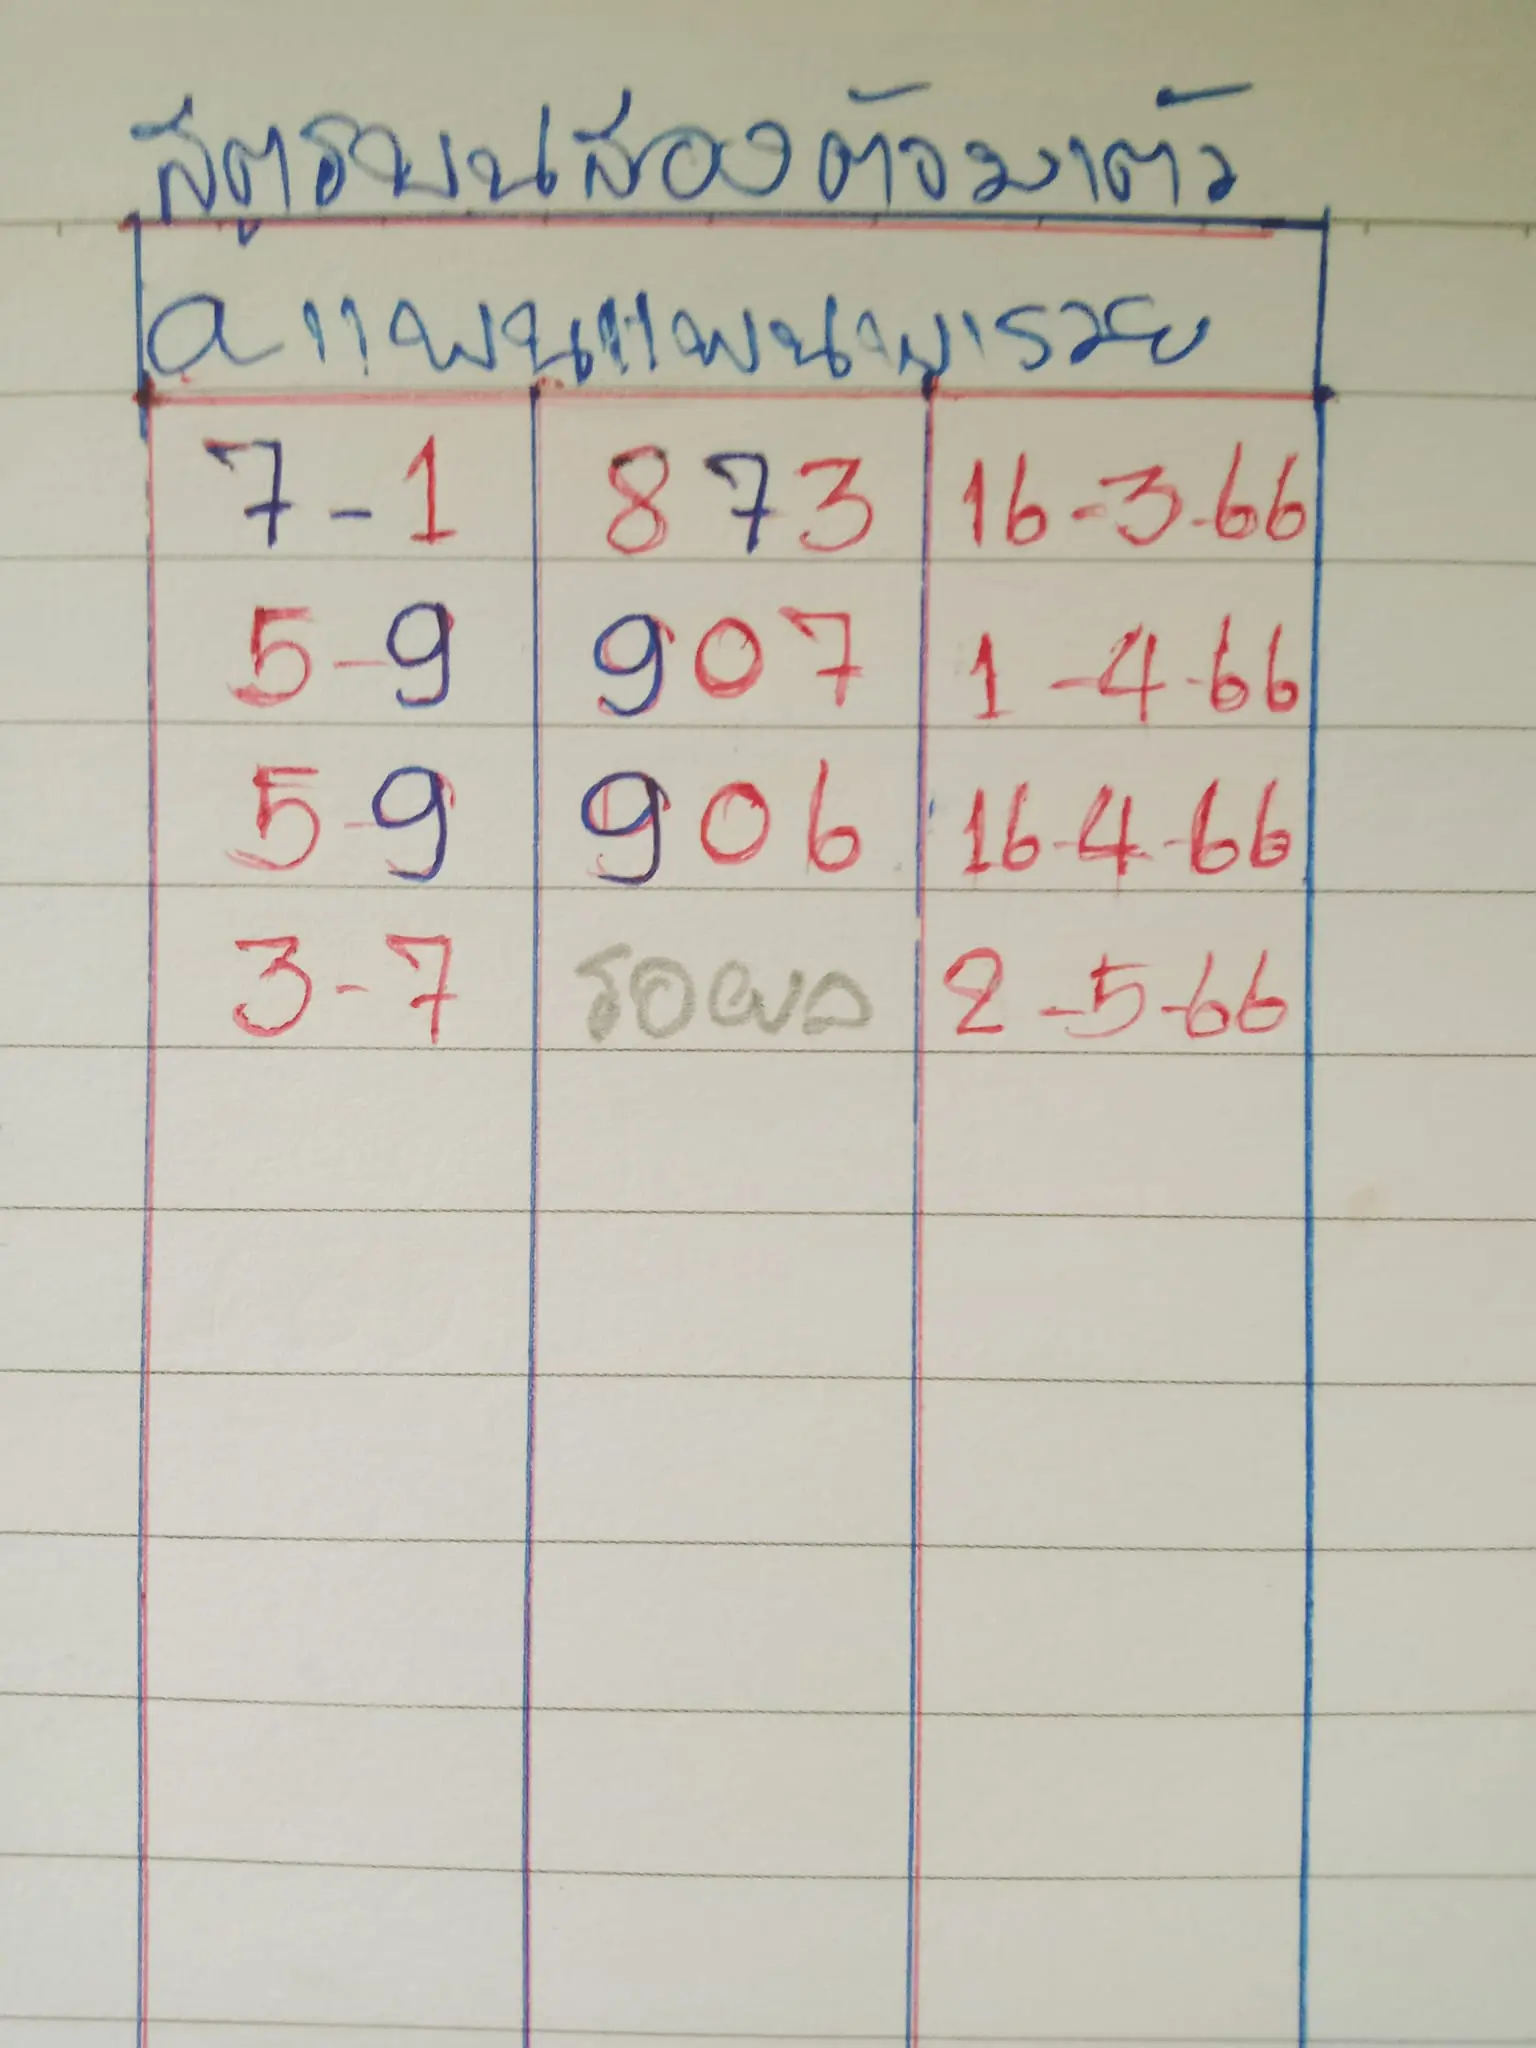 สูตรบนสองตัวมาตัว
a แฟนแฟนพารวย
7-1 873 16-3-66
5-9 907 1-4-66
5-9 906 16-4-66
3-7 รอผล 2-5-66